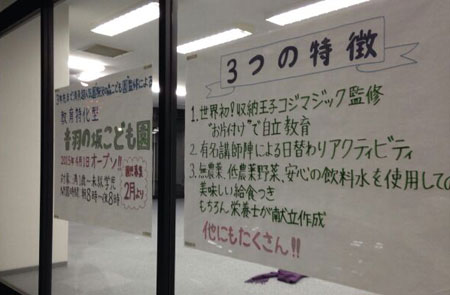 教育特化型
音羽の坂こども園
2015年4月1日オープン!!
2月より
3つの特徴
1. 世界初!収納王子コジマジック監修
"お片付け"で自立教育
2. 有名講師陣による日替わりアクティビティ
3. 無農薬、低農薬野菜、安心の飲料水を使用しての
美味しい給食つき
もちろん栄養士が献立作成
他にもたくさん!!